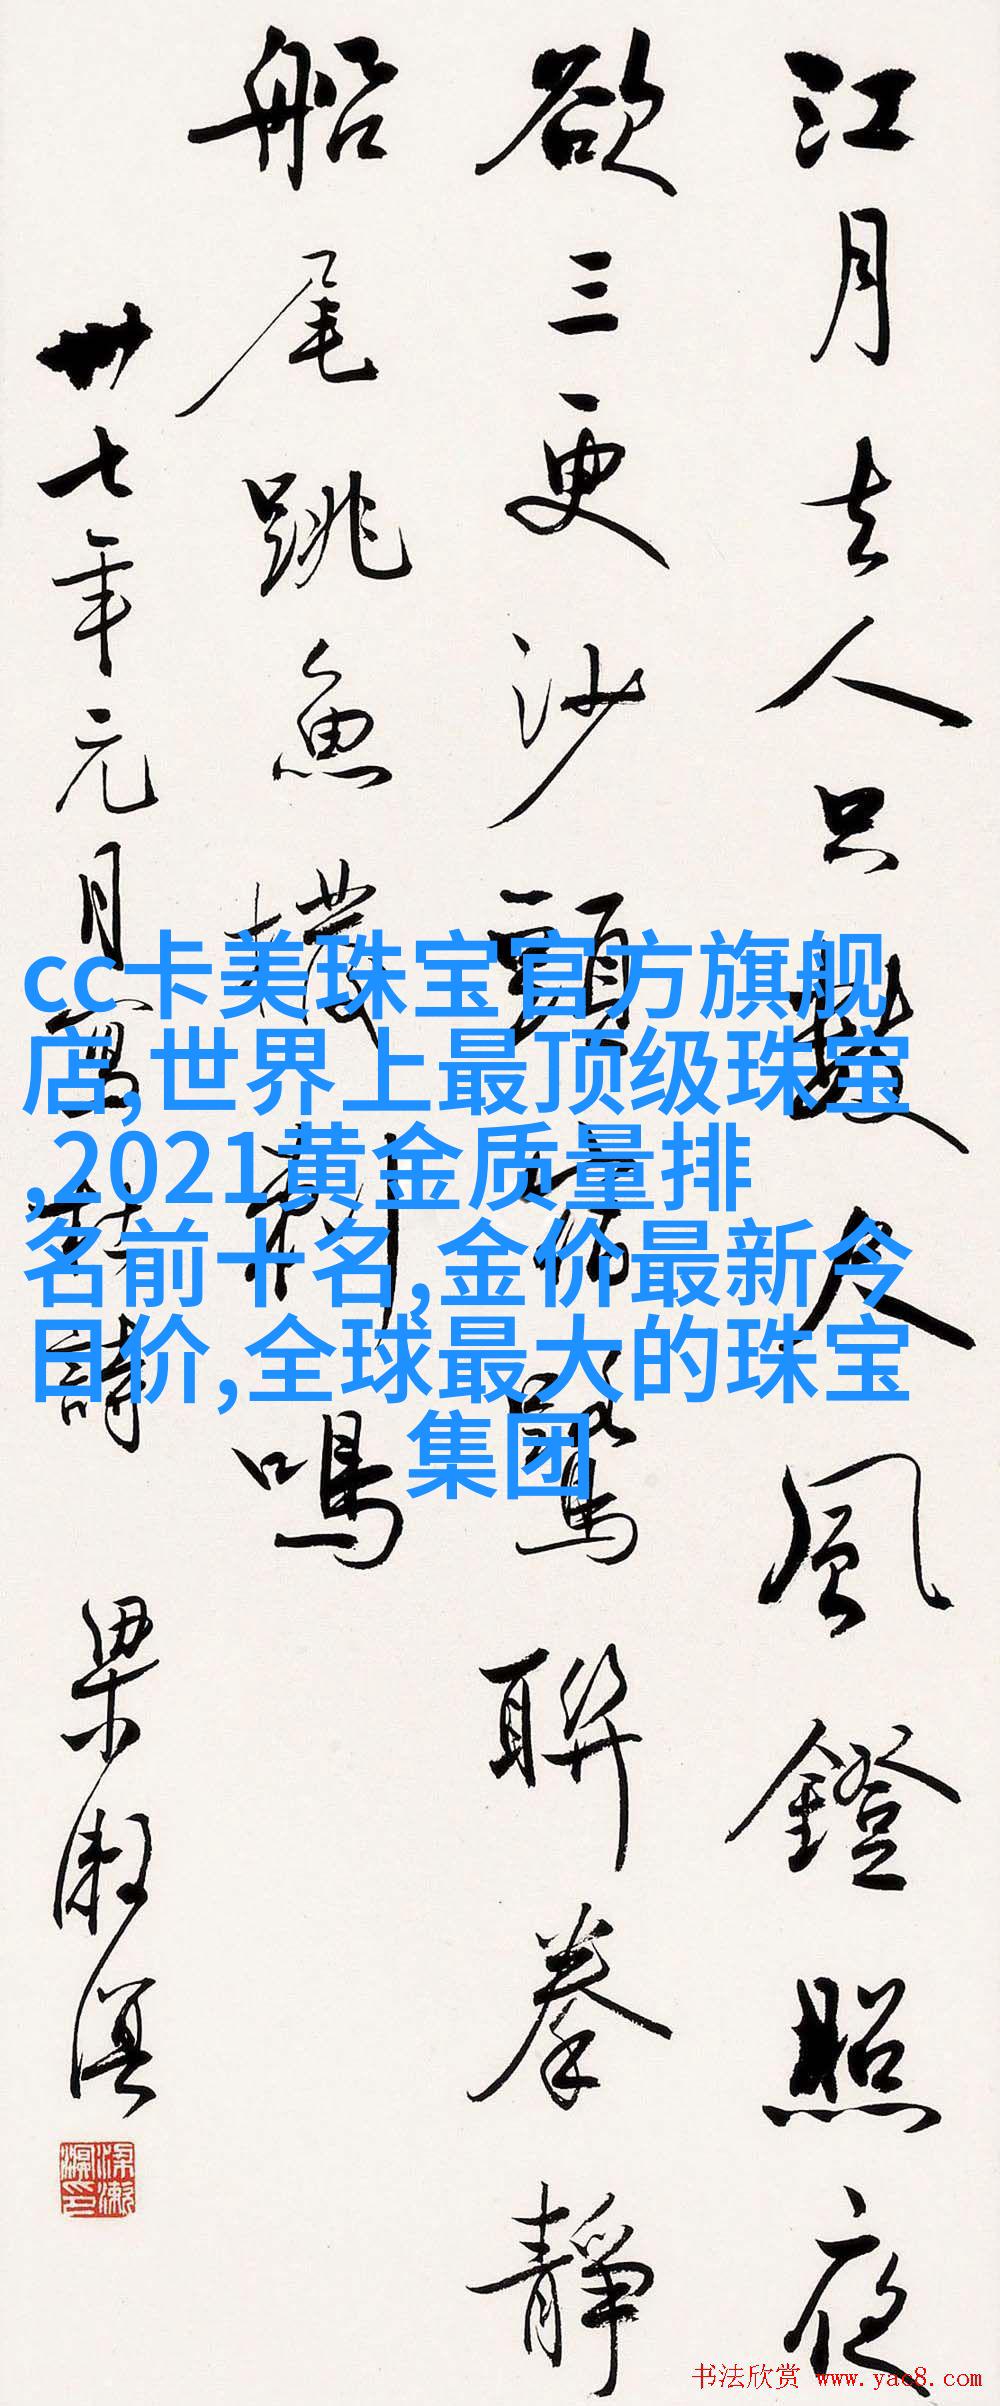 江月去人只數尺風鐙照夜
欲三更沙頭宿鷺聯拳靜
船尾跳魚撥剌鳴
卅七年元月寫杜詩 梁漱溟
梁漱溟印
cc卡美珠宝官方旗舰
店,世界上最顶级珠宝
,2021黄金质量排
名前十名,金价最新今
日价,全球最大的珠宝
集团
书法欣赏 www.yac8.com